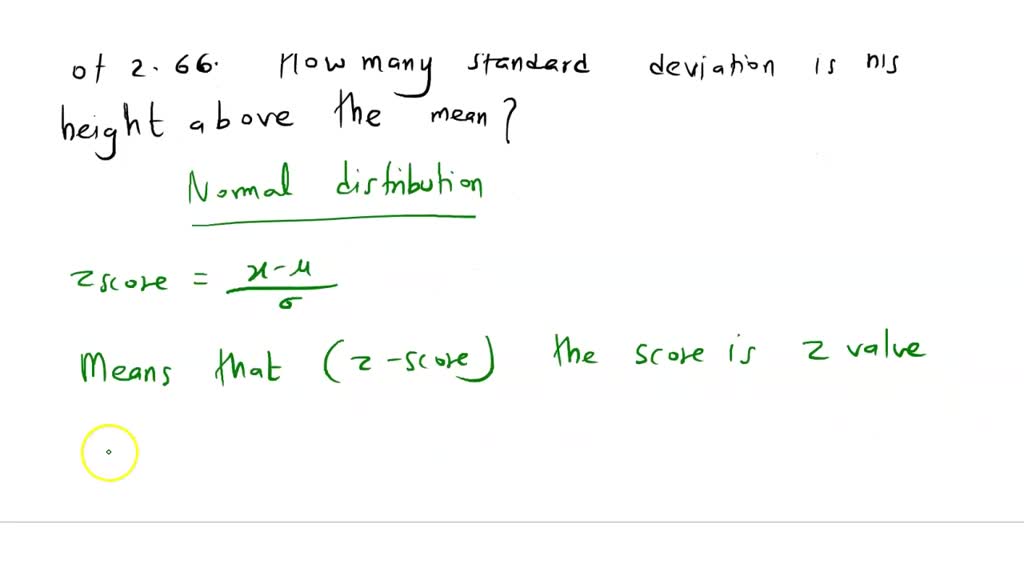 of 2.66. How many standard deviation is his
height above the mean?
Normal distribution
z score = x-μ
σ
Means that (z-score) the score is z value